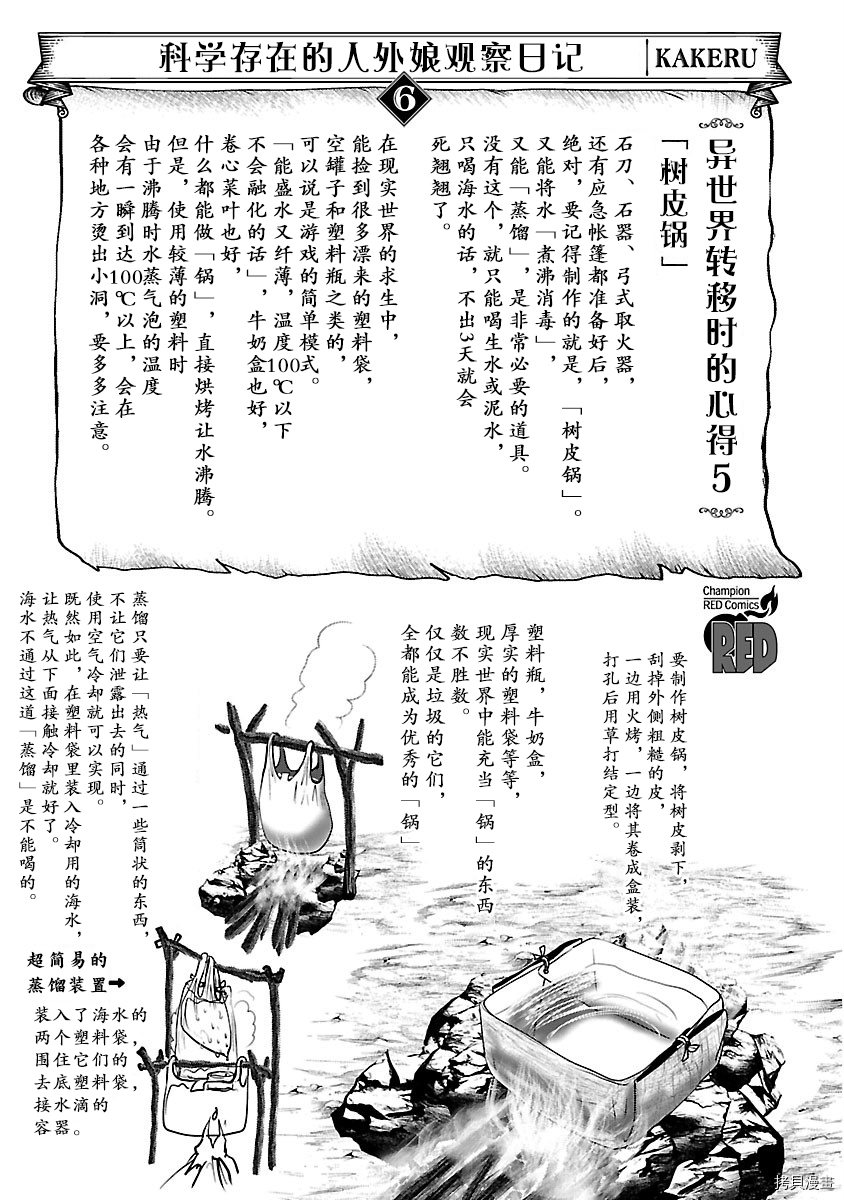 科学存在的人外娘观察日记
KAKERU
6
异世界转移时的心得5
「树皮锅」
石刀、石器、弓式取火器，
还有应急帐篷都准备好后，
绝对，要记得制作的就是，「树皮锅」。
又能将水「煮沸消毒」，
又能「蒸馏」，是非常必要的道具。
没有这个，就只能喝生水或泥水，
只喝海水的话，不出3天就会
死翘翘了。
在现实世界的求生中，
能捡到很多漂来的塑料袋，
空罐子和塑料瓶之类的，
可以说是游戏的简单模式。
「能盛水又纤薄，温度100℃以下
不会融化的话」，牛奶盒也好，
卷心菜叶也好，
什么都能做「锅」，直接烘烤让水沸腾。
但是，使用较薄的塑料时
由于沸腾时水蒸气泡的温度
会有一瞬到达100℃以上，会在
各种地方烫出小洞，要多多注意。
Champion
RED Comics
RED
要制作树皮锅，将树皮剥下，
刮掉外侧粗糙的皮，
一边用火烤，一边将其卷成盒装，
打孔后用草打结定型。
塑料瓶，牛奶盒，
厚实的塑料袋等等，
现实世界中能充当「锅」的东西
数不胜数。
仅仅是垃圾的它们，
全都能成为优秀的「锅」
蒸馏只要让「热气」通过一些筒状的东西，
不让它们泄露出去的同时，
使用空气冷却就可以实现。
既然如此，在塑料袋里装入冷却用的海水，
让热气从下面接触冷却就好了。
海水不通过这道「蒸馏」是不能喝的。
超简易的
蒸馏装置➡
装入了海水的
两个塑料袋，
围住它们的
去底塑料袋，
接水滴的
容器。
拷貝漫畫